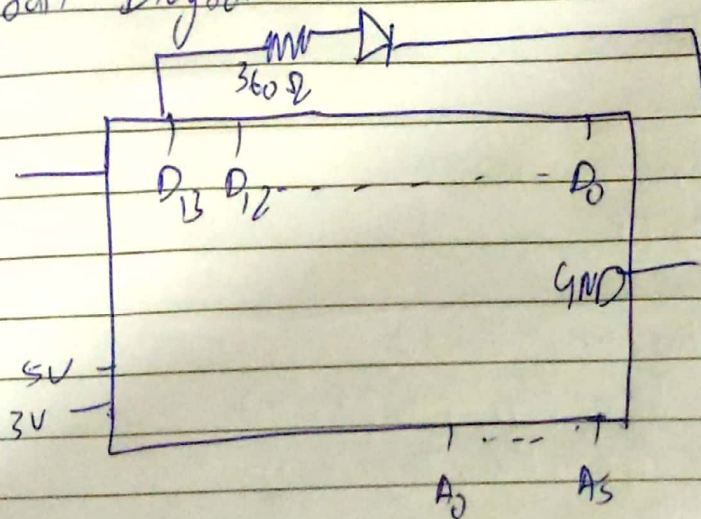 360 Ω
D13 D12 D0
GND
5V
3V
A0 A5